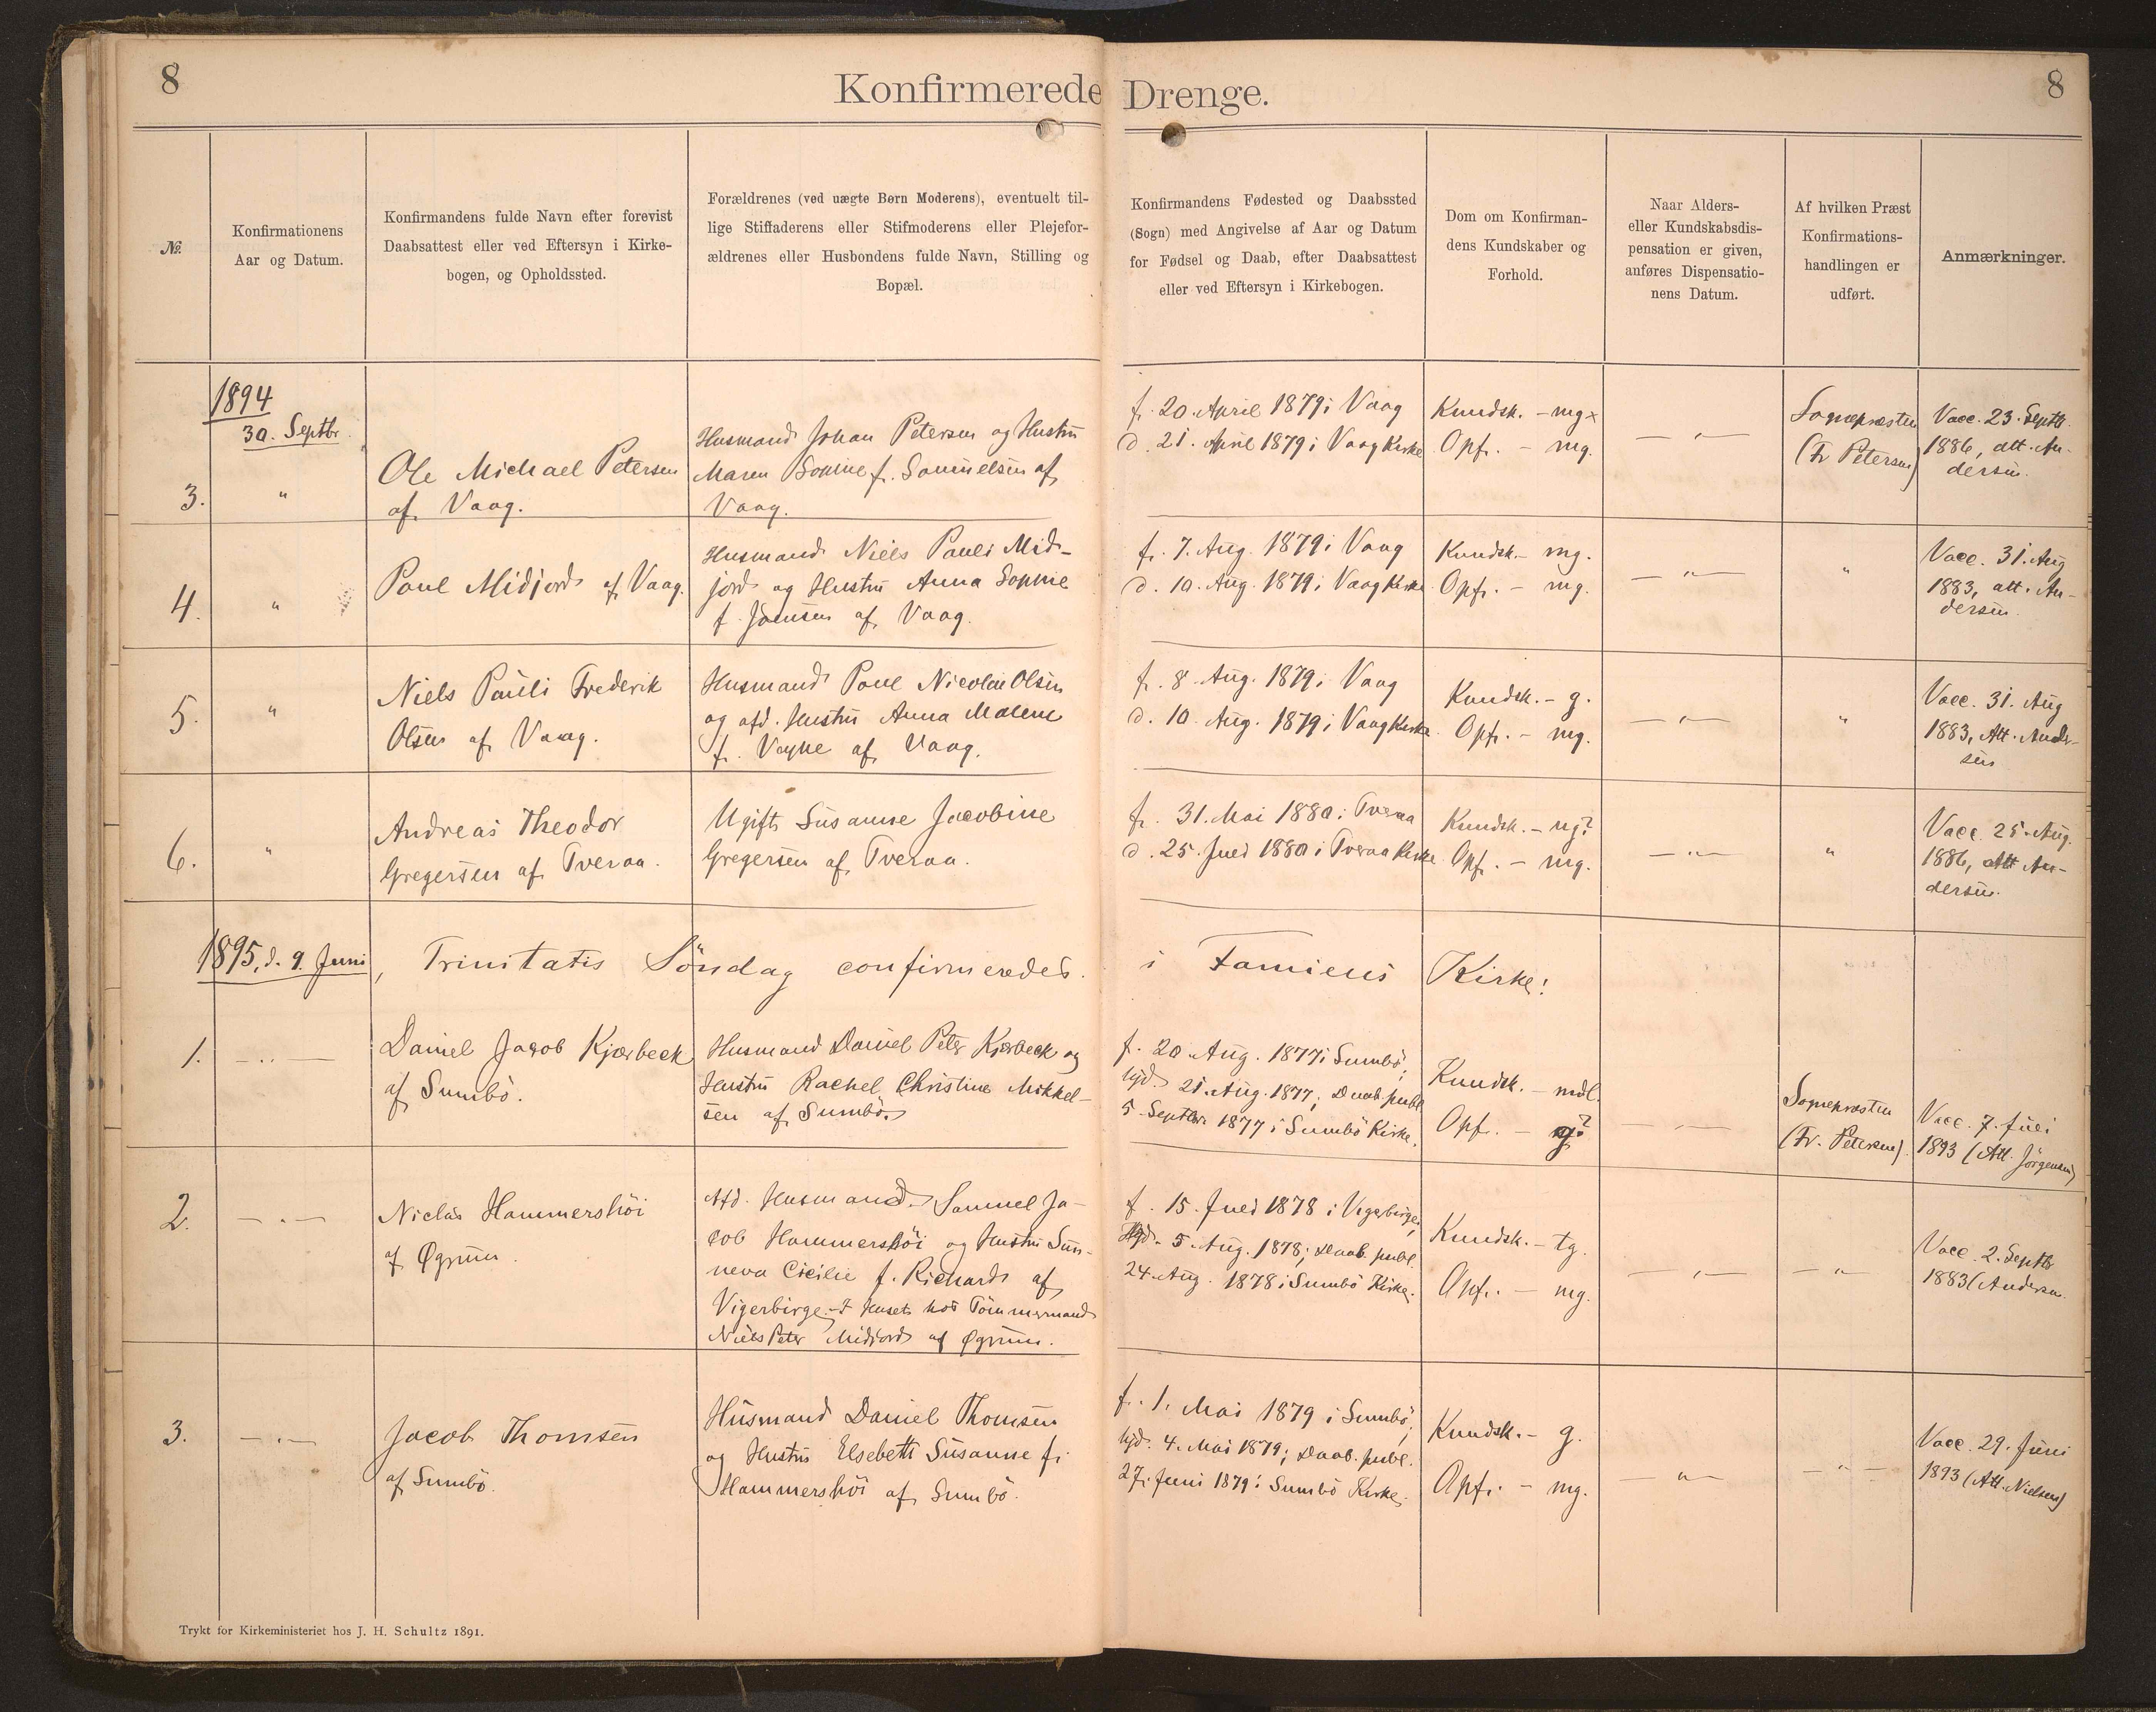 8
Konfirmerede Drenge.
8
№.
Konfirmationens
Aar og Datum.
Konfirmandens fulde Navn efter forevist
Daabsattest eller ved Eftersyn i Kirke-
bogen, og Opholdssted.
Forældrenes (ved uægte Børn Moderens), eventuelt til-
lige Stiffaderens eller Stifmoderens eller Plejefor-
ældrenes eller Husbondens fulde Navn, Stilling og
Bopæl.
Konfirmandens Fødested og Daabssted
(Sogn) med Angivelse af Aar og Datum
for Fødsel og Daab, efter Daabsattest
eller ved Eftersyn i Kirkebogen.
Dom om Konfirman-
dens Kundskaber og
Forhold.
Naar Alders-
eller Kundskabsdis-
pensation er given,
anføres Dispensatio-
nens Datum.
Af hvilken Præst
Konfirmations-
handlingen er
udført.
Anmærkninger.
1894
30. Septbr.
3.
"
Ole Michael Petersen
af Vaag.
Husmand Johan Petersen og Hustru
Maren Sophie f. Samuelsen af
Vaag.
f. 20. April 1879 i Vaag
d. 21. April 1879 i Vaag Kirke
Kundsk. - mg x
Opf. - mg.
— " —
Sognepræsten
(Fr Petersen)
Vacc. 23. Septb.
1886, att. An-
dersen.
4.
"
Poul Midjord af Vaag.
Husmand Niels Pauli Mid-
jord og Hustru Anna Sophie
f. Joensen af Vaag.
f. 7. Aug. 1879 i Vaag
d. 10. Aug. 1879 i Vaag Kirke
Kundsk. - mg.
Opf. - mg.
— " —
"
Vacc. 31. Aug
1883, att. An-
dersen.
5.
"
Niels Pauli Frederik
Olsen af Vaag.
Husmand Poul Nicolai Olsen
og afd. Hustru Anna Malene
f. Vaghe af Vaag.
f. 8 Aug. 1879 i Vaag
d. 10. Aug. 1879 i Vaag Kirke
Kundsk. - g.
Opf. - mg.
— " —
"
Vacc. 31. Aug
1883, Att. Ander-
sen
6.
"
Andreas Theodor
Gregersen af Tveraa.
Ugift Susanne Jacobine
Gregersen af Tveraa.
f. 31. Mai 1880 i Tveraa
d. 25. Juli 1880 i Tveraa Kirke
Kundsk. - ug?
Opf. - mg.
— " —
"
Vacc. 25. Aug.
1886, Att An-
dersen.
1895, d. 9. Juni, Trinitatis Söndag confirmeredes i Famiens Kirke:
1.
— " —
Daniel Jacob Kjærbeck
af Sumbö.
Husmand Daniel Peter Kjærbeck og
Hustru Rachel Christine Mikkel-
sen af Sumbö.
f. 20. Aug. 1877 i Sumbö;
hjd. 21. Aug. 1877; Daab. publ.
5. Septbr. 1877 i Sumbö Kirke.
Kundsk. - mdl.
Opf. - g?
— " —
Sognepræsten
(Fr. Petersen)
Vacc. 7. Juli
1893 (Att. Jörgensen)
2.
— " —
Niclas Hammershöi
af Øgrum
Afd. Husmand Samuel Ja-
cob Hammershöi og Hustru Sun-
neva Cicilie f. Richard af
Vigerbirge - I Huset hos Tömmermand
Niels Peter Midjord af Øgrum.
f. 15. Juli 1878 i Vigerbirge;
Hjd. 5. Aug. 1878; Daab. publ.
24. Aug. 1878 i Sumbö Kirke.
Kundsk. - tg.
Opf. - mg.
— " —
— " —
Vacc. 2. Septb.
1883 (Andersen
3.
— " —
Jacob Thomsen
af Sumbö.
Husmand Daniel Thomsen
og Hustru Elsebeth Susanne f.
Hammershöi af Sumbö.
f. 1. Mai 1879 i Sumbö;
hjd. 4. Mai 1879; Daab. publ.
27. Juni 1879 i Sumbö Kirke.
Kundsk. - g.
Opf. - mg.
— " —
— " —
Vacc. 29. Juni
1893 (Att. Nielsen)
Trykt for Kirkeministeriet hos J. H. Schultz 1891.